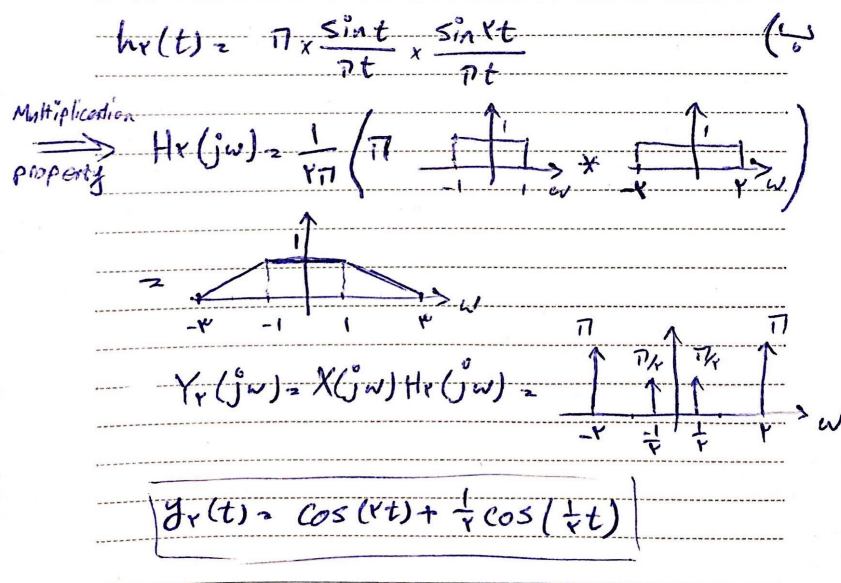 h۲(t) = π × sin t / πt × sin ۲t / πt (ب
Multiplication property ⟹ H۲(jω) = ۱/۲π (π ۱ -۱ ۱ ω * ۱ -۲ ۲ ω)
= ۱ -۳ -۱ ۱ ۳ ω
Y۲(jω) = X(jω) H۲(jω) = π π/۲ π/۲ π -۲ -۱/۲ ۱/۲ ۲ ω
y۲(t) = cos(۲t) + ۱/۲ cos(۱/۲ t)